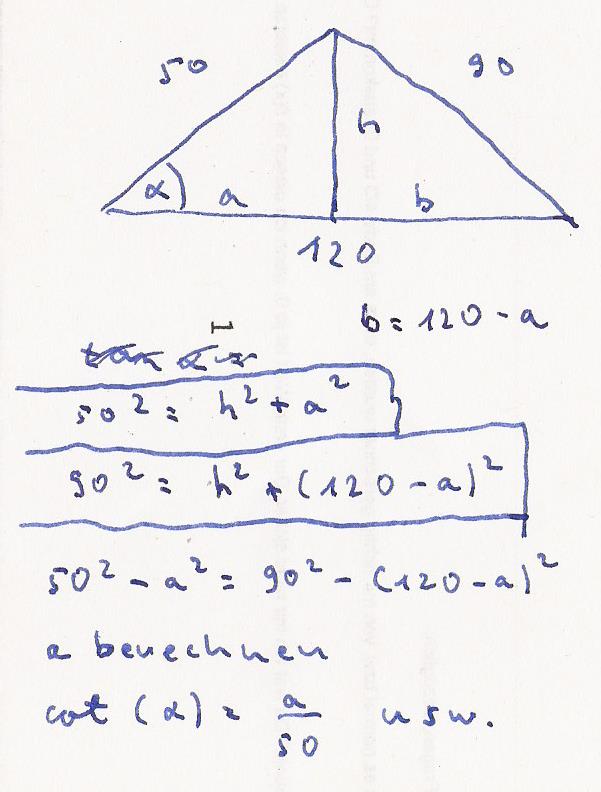 50
90
h
α
a
b
120
b = 120 - a
1
50² = h² + a²
90² = h² + (120 - a)²
50² - a² = 90² - (120 - a)²
a berechnen
cot (α) = a/50 usw.